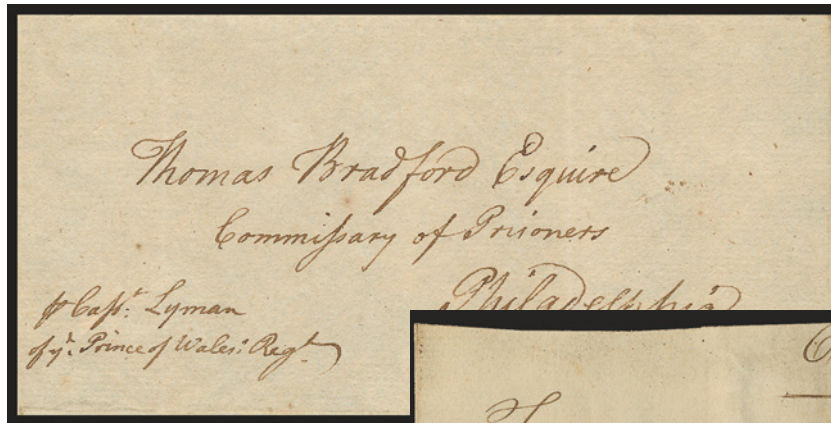 Thomas Bradford Esquire
Commiſsary of Prisoners
Philadelphia
⅌ Capt: Lyman
of ye: Prince of Wales: Regt